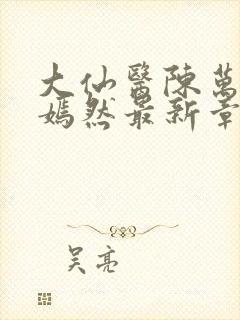 大仙醫陳萬
嫣然最新章
吳亮